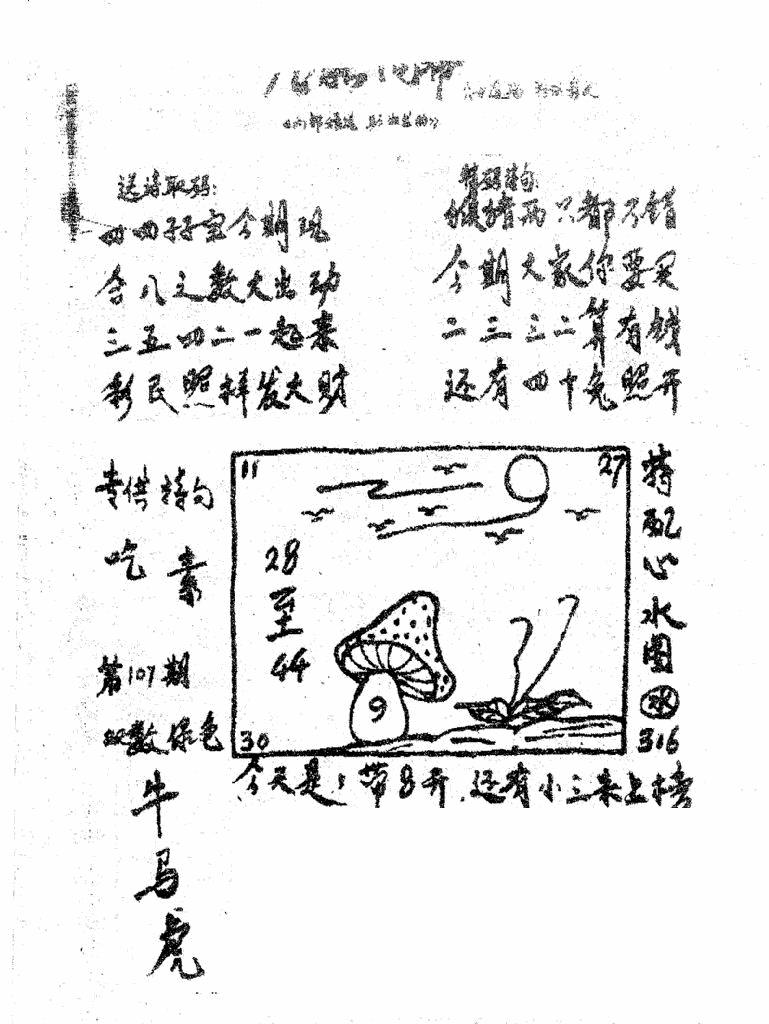 送诗取码:
四四字宝今期现
合八之数大出动
三五四二一起来
彩民照样发大财
猴猪两只都不错
今期大家你要买
二三三二算有钱
还有四十兔照开
专供特句
吃素
第107期
双数绿色
牛
马
虎
11
27
28
至
44
9
30
特配心水图
316
今天是:带8开.还有小三来上榜